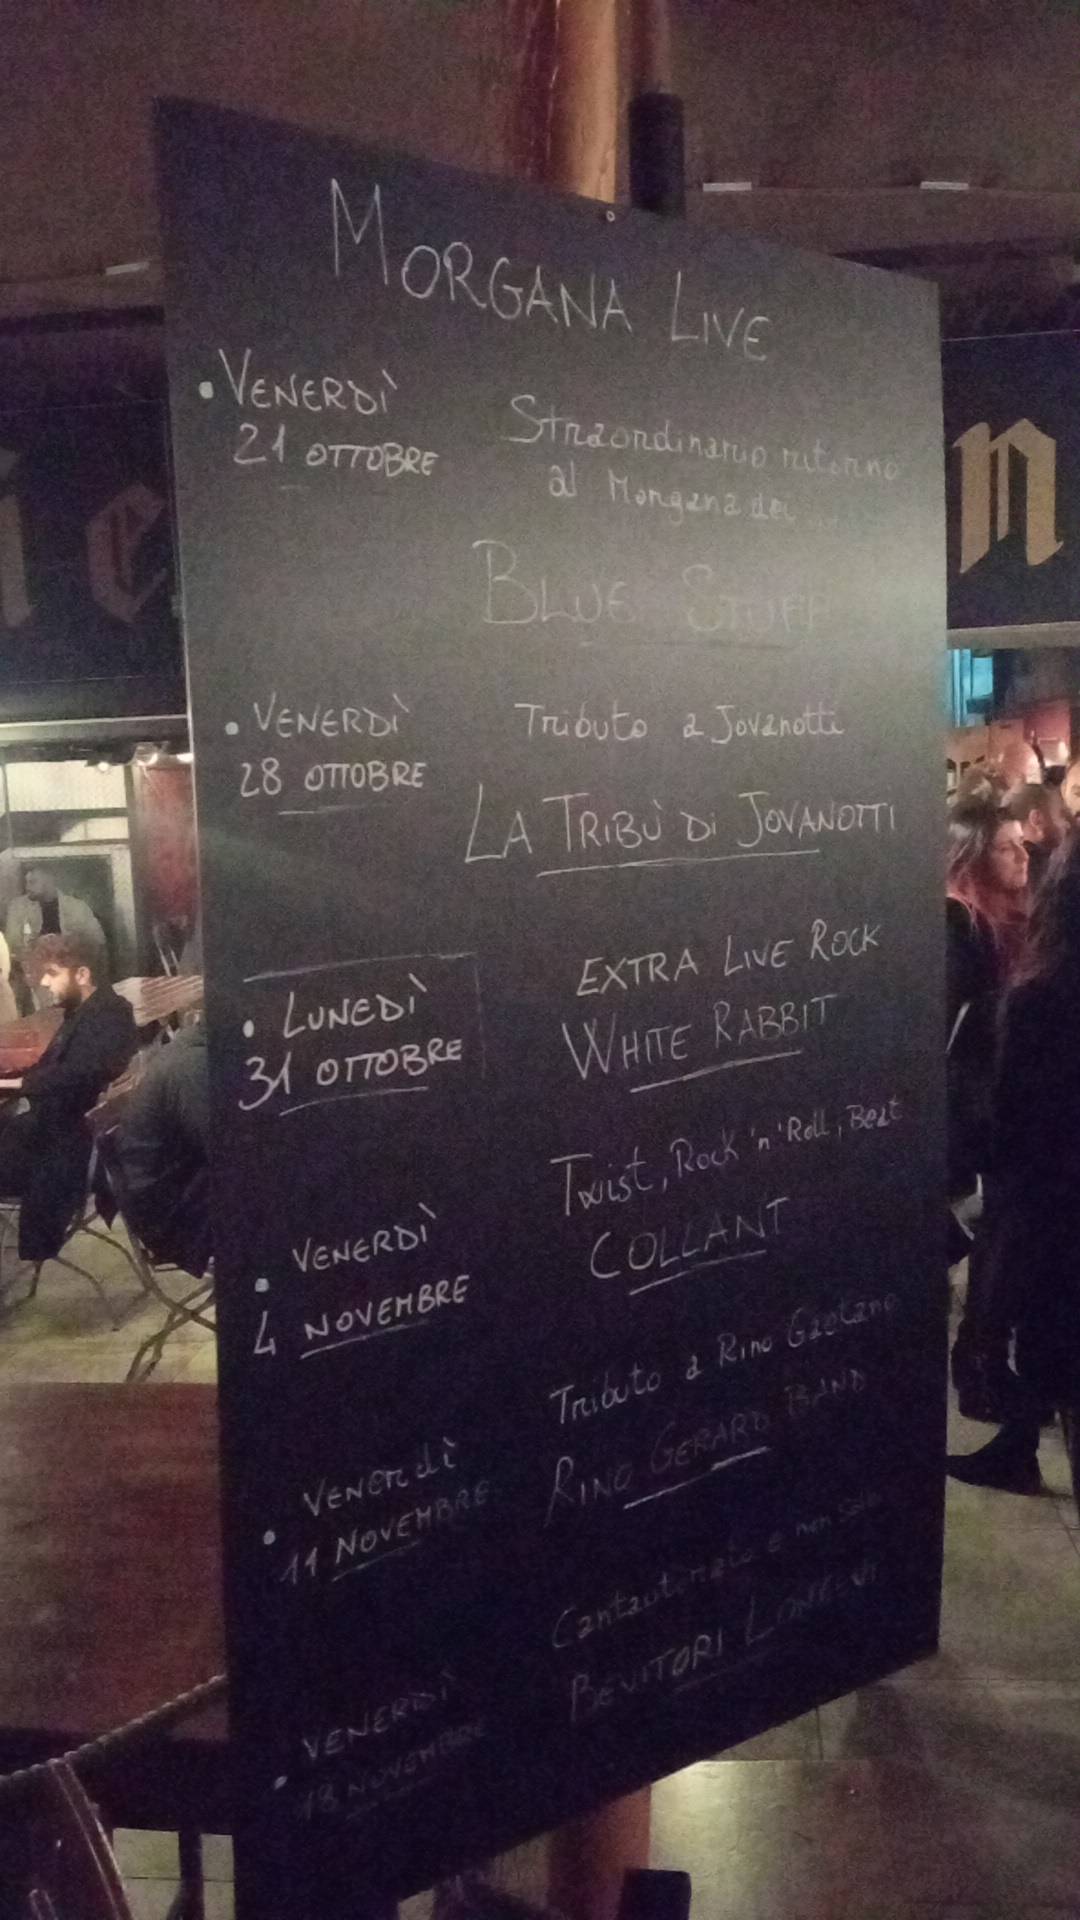 MORGANA LIVE
• VENERDÌ
21 OTTOBRE
Straordinario ritorno
al Morgana dei
BLUE STUFF
• VENERDÌ
28 OTTOBRE
Tributo a Jovanotti
LA TRIBÙ Di JOVANOTTI
• LUNEDÌ
31 OTTOBRE
EXTRA LIVE ROCK
WHITE RABBIT
• VENERDÌ
4 NOVEMBRE
Twist, Rock 'n' Roll, Beat
COLLANT
• VENERdì
11 NOVEMBRE
Tributo a Rino Gaetano
RINO GERARD BAND
• VENERDÌ
18 NOVEMBRE
Cantautorato e non solo
BEVITORI LONGEVI
n
ie